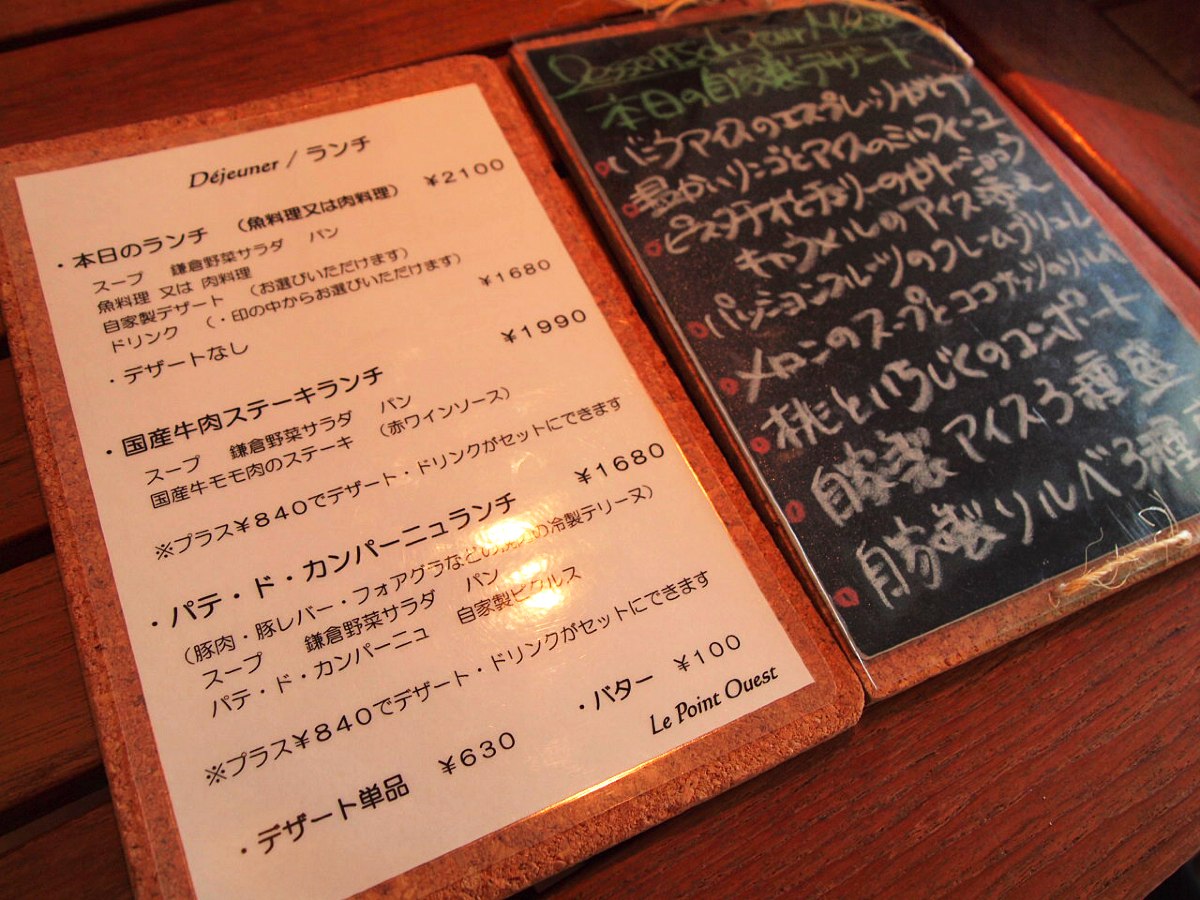 Déjeuner / ランチ
・本日のランチ （魚料理又は肉料理） ￥2100
スープ 鎌倉野菜サラダ パン
魚料理 又は 肉料理
自家製デザート （お選びいただけます）
ドリンク （・印の中からお選びいただけます）
・デザートなし ￥1680
・国産牛肉ステーキランチ ￥1990
スープ 鎌倉野菜サラダ パン
国産牛モモ肉のステーキ （赤ワインソース）
※プラス￥840でデザート・ドリンクがセットにできます
・パテ・ド・カンパーニュランチ ￥1680
（豚肉・豚レバー・フォアグラなどの の冷製テリーヌ）
スープ 鎌倉野菜サラダ パン
パテ・ド・カンパーニュ 自家製ピクルス
※プラス￥840でデザート・ドリンクがセットにできます
・デザート単品 ￥630
・バター ￥100
Le Point Ouest
Desserts du jour Maison
本日の自家製デザート
バニラアイスのエスプレッソがけ
温かいリンゴとアイスのミルフィーユ
ピスタチオとチェリーのガトーショコラ
キャラメルのアイス添え
パッションフルーツのクレームブリュレ
メロンのスープとココナッツのソルベ
桃といちじくのコンポート
自家製アイス3種盛
自家製ソルベ3種